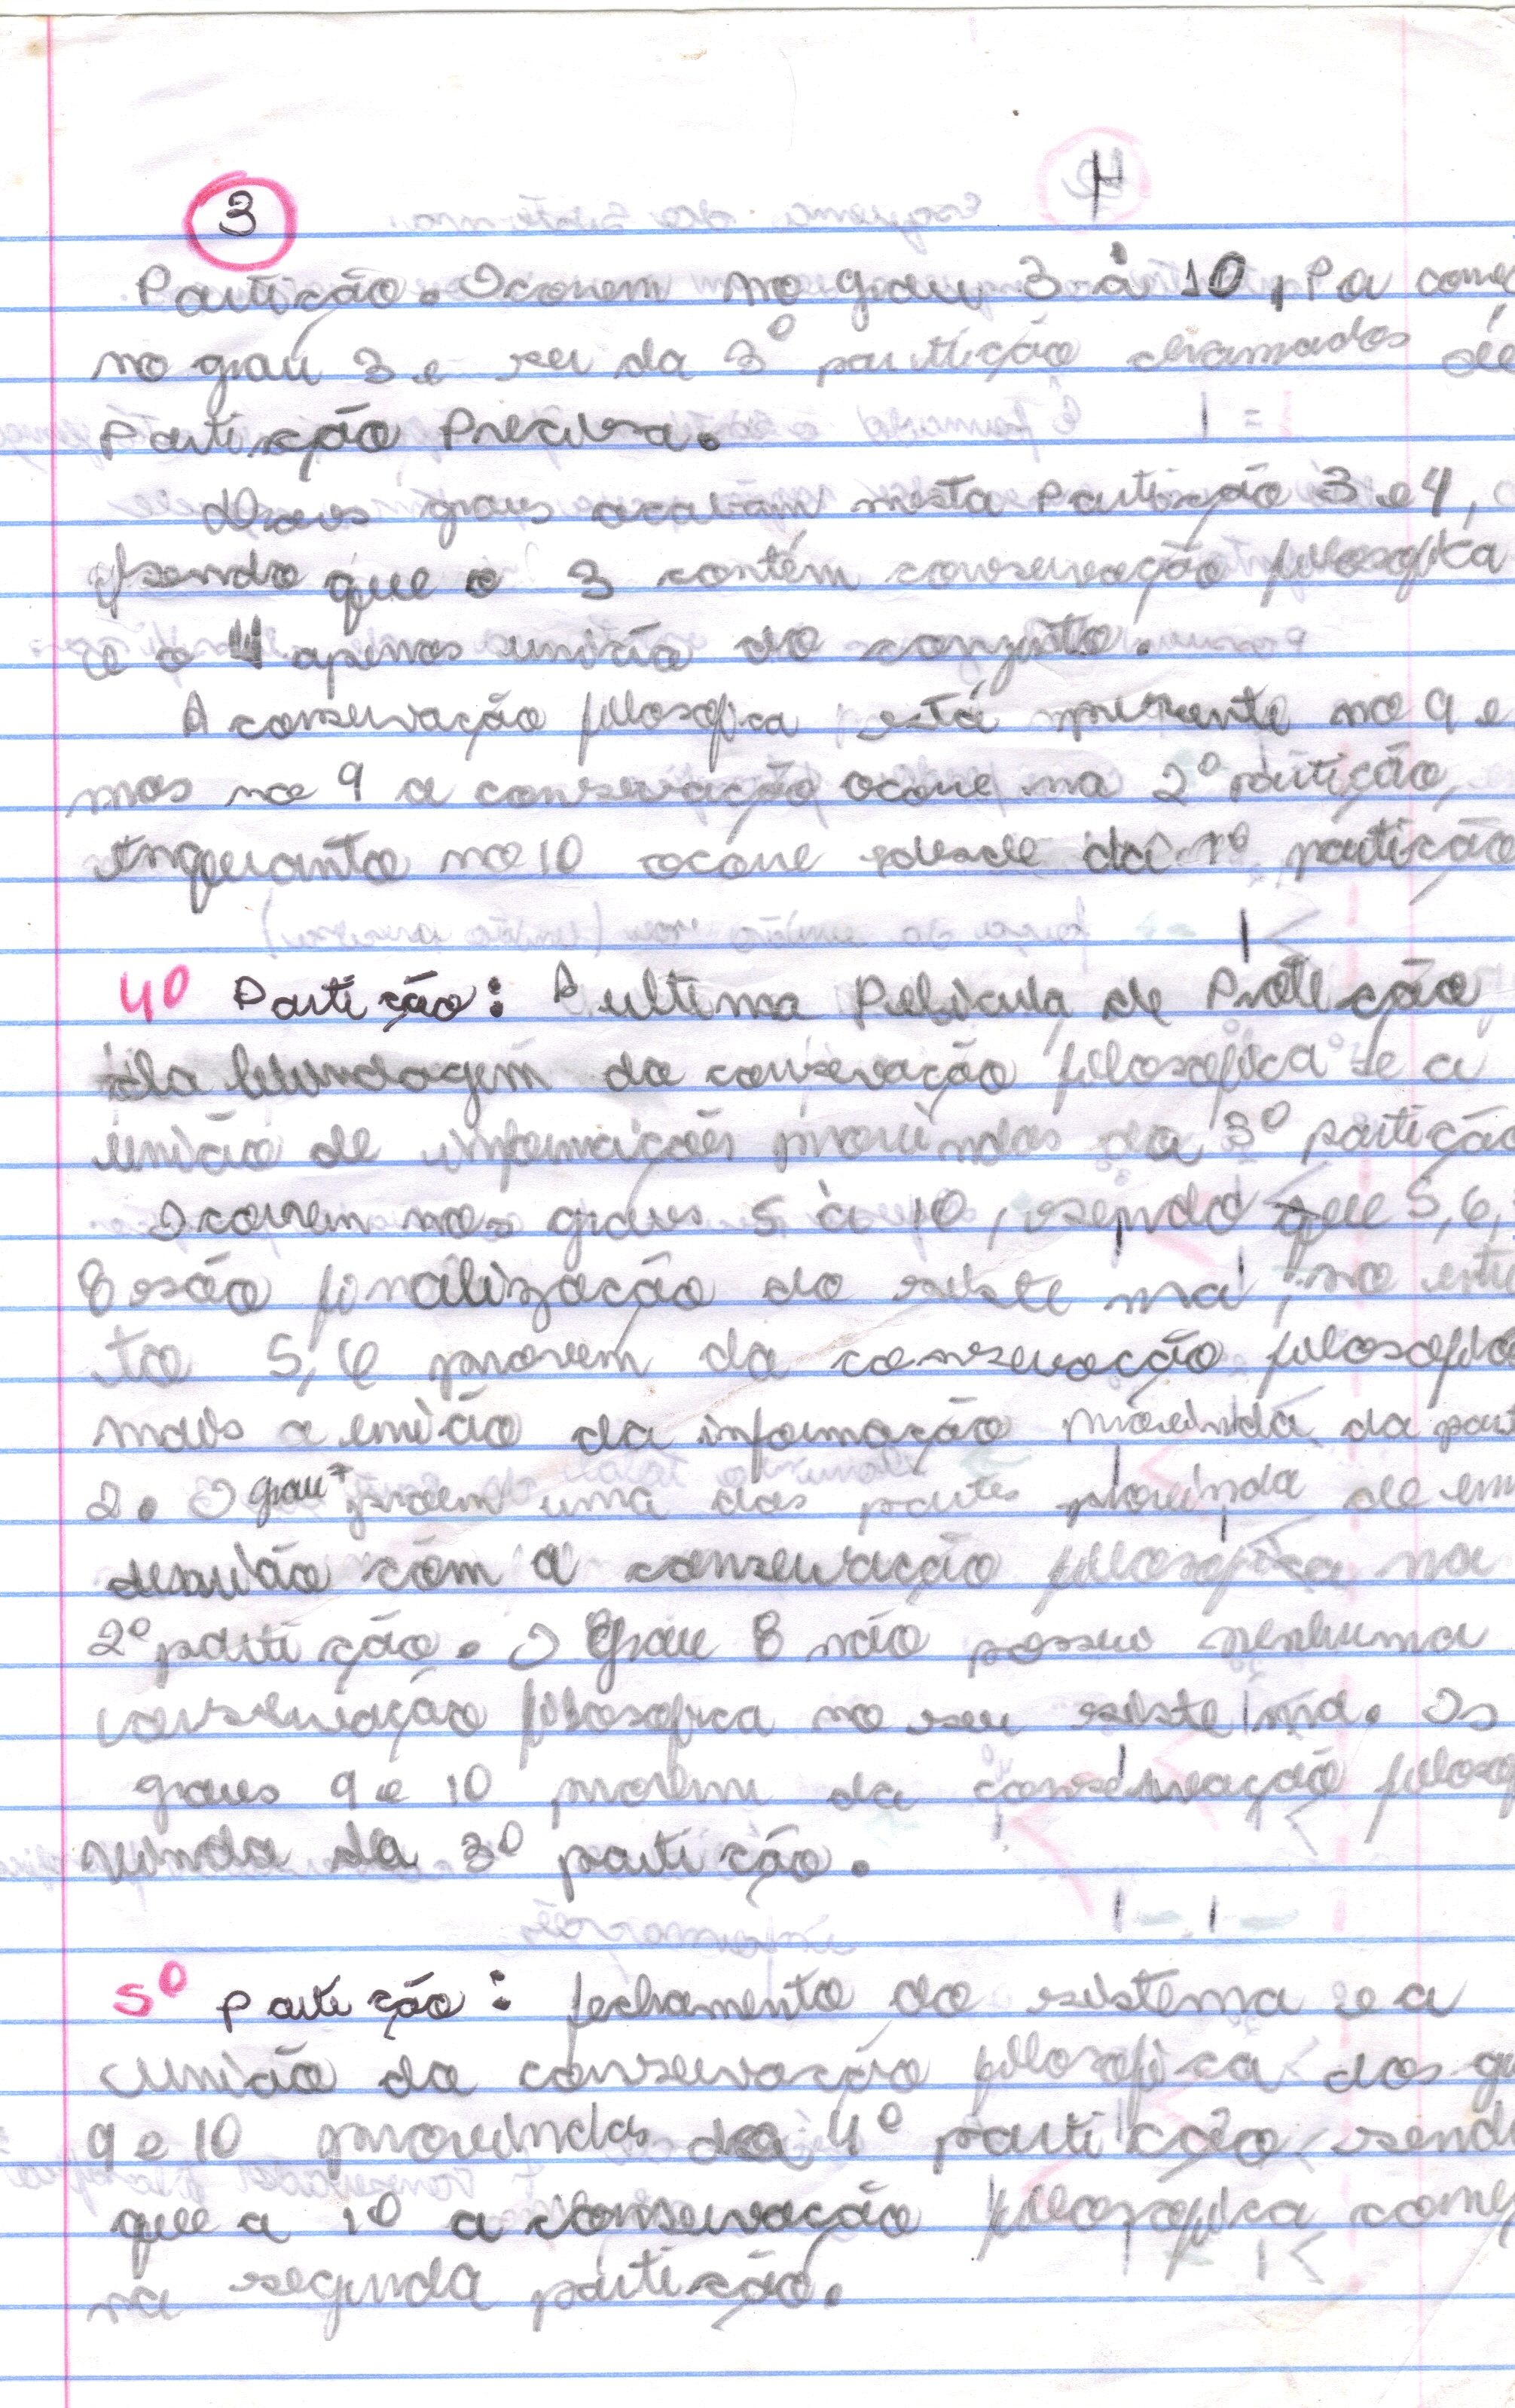 3
4
Partição. Ocorrem no grau 3 à 10, Pa come
no grau 3 e ser da 3º partição chamados de
Partição Precisa.
graus acabam nesta Partição 3 e 4,
sendo que o 3 contém conservação filosofica
e o 4 apenas união do conjuto.
A conservação filosofica está presente no 9 e
mas no 9 a conservação ocorre na 2º partição,
enquanto no 10 ocorre desde da 1º partição
4º Partição: A ultima Pelicula de Proteção
da da conservação filosofica e a
união de informações provindas da 3º partição
Ocorrem nos graus 5 à 10, sendo que 5, 6,
8 são finalização do sistema, no
to 5, 6 provem da conservação filosofica
mais a união da informação provinda da part
2. O grau 7 provem uma das partes provinda de
desunião com a conservação filosofica na
2º partição. O Grau 8 não possui nenhuma
conservação filosofica no seu sistema. Os
graus 9 e 10 provem da conservação filosof
vinda da 3º partição.
5º partição: fechamento do sistema e a
União da conservação filosofica dos gr
9 e 10 provindas da 4º partição send
que a 10 a conservação filosofica começ
na segunda partição.